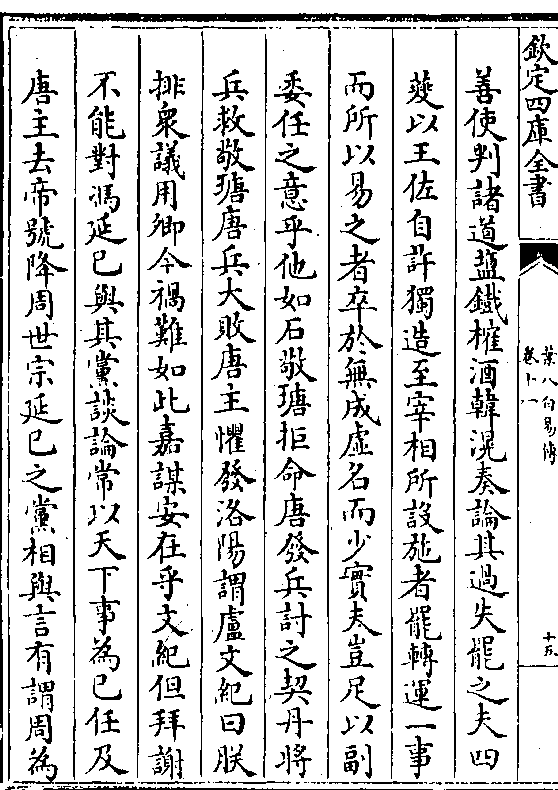 欽定四庫全書
葉八白易傳
卷十一
十五
善使判諸道鹽鐵榷酒韓滉奏論其過失罷之夫四
蓌以王佐自許獨造至宰相所設施者罷轉運一事
而所以易之者卒於無成虛名而少實夫豈足以副
委任之意乎他如石敬瑭拒命唐發兵討之契丹將
兵救敬瑭唐兵大敗唐主懼發洛陽謂盧文紀曰朕
排衆議用卿今禍難如此嘉謀安在乎文紀但拜謝
不能對馮延巳與其黨談論常以天下事為已任及
唐主去帝號降周世宗延巳之黨相與言有謂周為